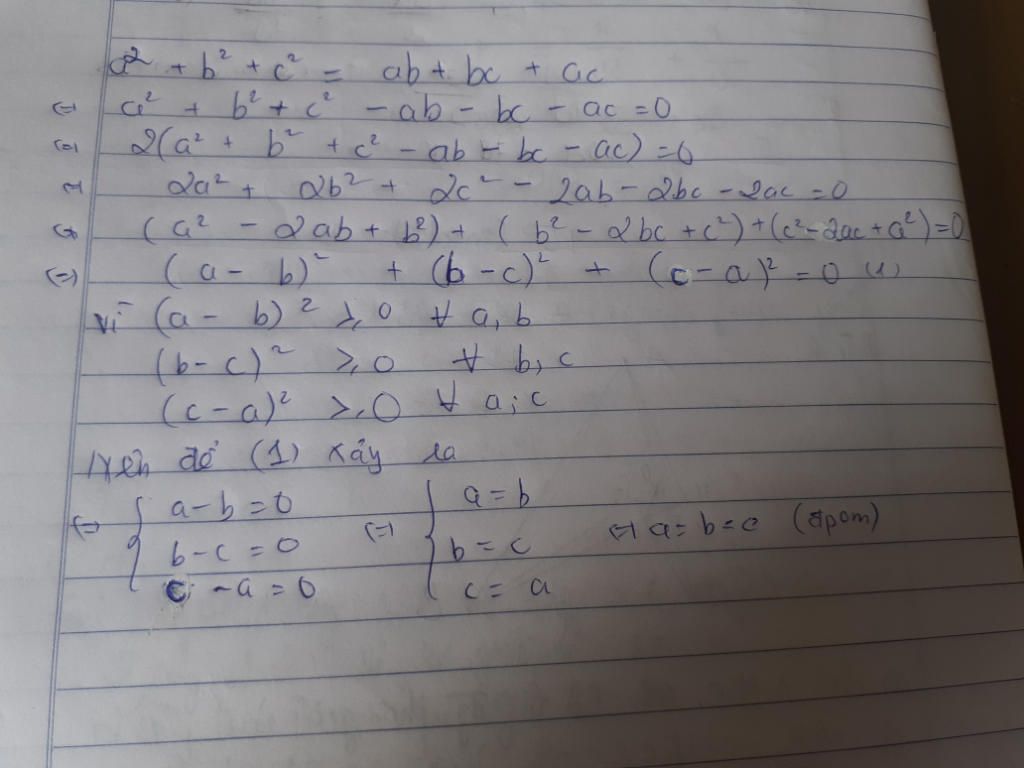 a² + b² + c² = ab + bc + ac
(=) a² + b² + c² - ab - bc - ac = 0
(=) 2(a² + b² + c² - ab - bc - ac) = 0
(=) 2a² + 2b² + 2c² - 2ab - 2bc - 2ac = 0
(=) (a² - 2ab + b²) + (b² - 2bc + c²) + (c² - 2ac + a²) = 0
(=) (a - b)² + (b - c)² + (c - a)² = 0 (1)
Vì (a - b)² ≥ 0 ∀ a, b
(b - c)² ≥ 0 ∀ b, c
(c - a)² ≥ 0 ∀ a; c
Nên để (1) xảy ra
(=) { a - b = 0 (=) { a = b
b - c = 0 b = c (=) a = b = c (đpcm)
c - a = 0 c = a